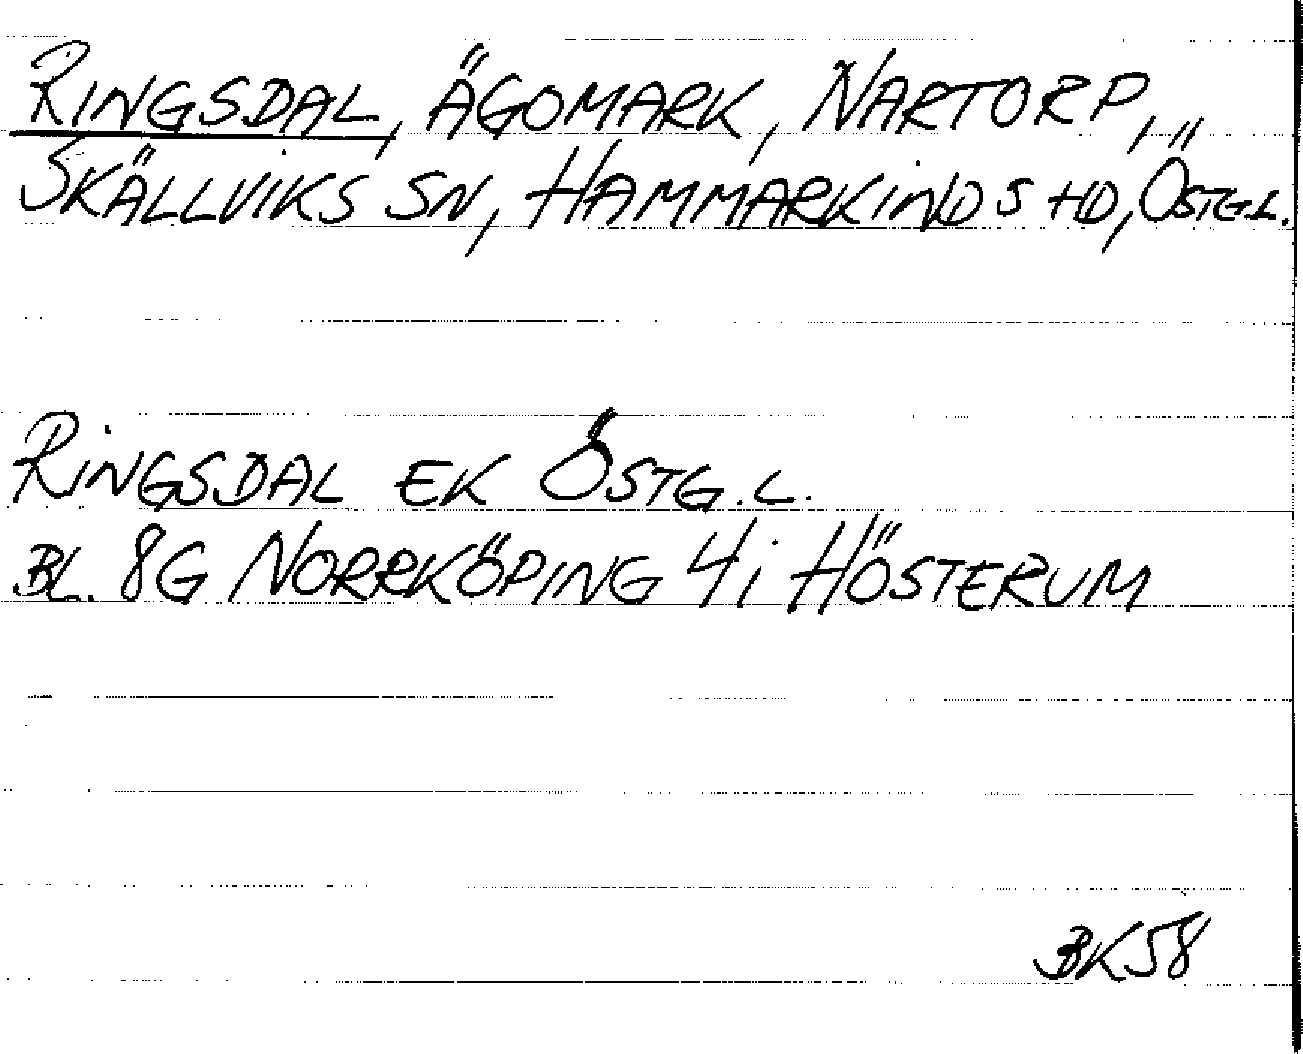 RINGSDAL, ÄGOMARK, NARTORP,
SKÄLLVIKS SN, HAMMARKINDS HD, ÖSTG.L.
RINGSDAL EK ÖSTG.L.
BL. 8G NORRKÖPING 4i HÖSTERUM
BK58